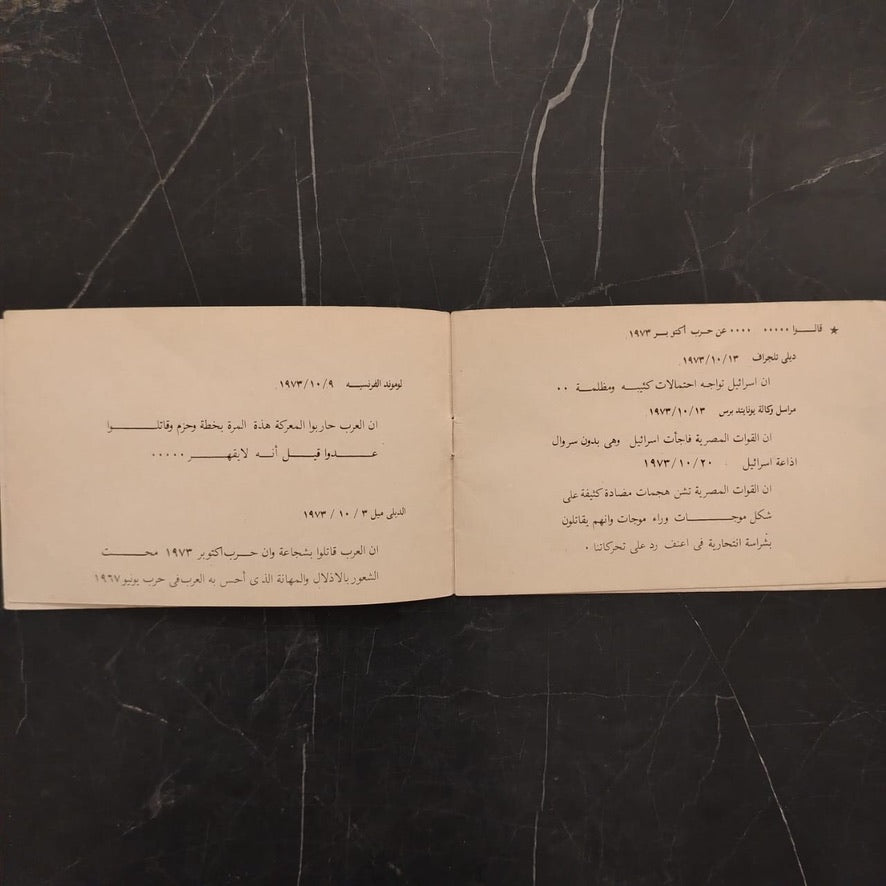 ★ قالـــوا ٠٠٠٠٠ ٠٠٠٠ عن حرب أكتوبـر ١٩٧٣
ديلى تلجراف ١٩٧٣/١٠/١٣
ان اسرائيل تواجه احتمالات كئيبه ومظلمة ٠٠
مراسل وكالة يونايتد برس ١٩٧٣/١٠/١٣
ان القوات المصرية فاجأت اسرائيل وهى بدون سروال
اذاعة اسرائيل ١٩٧٣/١٠/٢٠
ان القوات المصرية تشن هجمات مضادة كثيفة على
شكل موجـــات وراء موجات وانهم يقاتلون
بشراسة انتحارية فى اعنف رد على تحركاتنا ٠
لوموند الفرنسيـه ١٩٧٣/١٠/٩
ان العرب حاربوا المعركة هذة المرة بخطة وحزم وقاتلـــوا
عـــدوا قيـل أنـه لايقهـر ٠٠٠٠٠
الديلى ميل ٣ / ١٠ / ١٩٧٣
ان العرب قاتلوا بشجاعة وان حرب اكتوبر ١٩٧٣ محـــت
الشعور بالاذلال والمهانة الذى أحس به العرب فى حرب يونيو ١٩٦٧